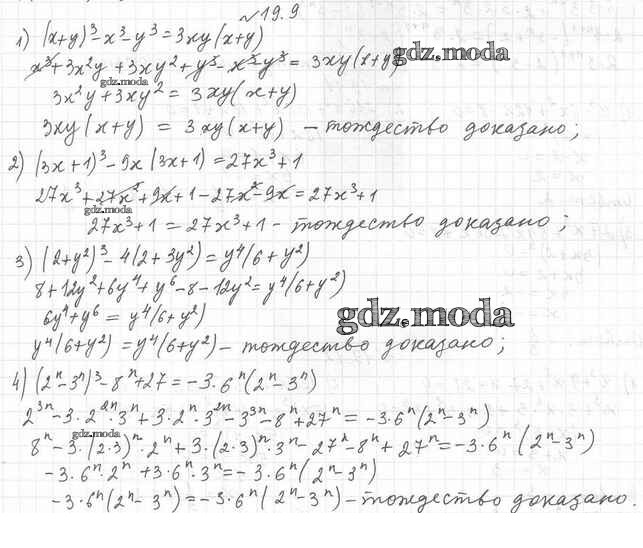 №19.9
1) (x+y)³-x³-y³=3xy(x+y)
x³+3x²y+3xy²+y³-x³-y³=3xy(x+y)
gdz.moda
gdz.moda
3x²y+3xy²=3xy(x+y)
3xy(x+y)=3xy(x+y). - тождество доказано;
2) (3x+1)³-9x(3x+1)=27x³+1
27x³+27x²+9x+1-27x²-9x=27x³+1
gdz.moda
27x³+1=27x³+1 - тождество доказано;
3) (2+y²)³-4(2+3y²)=y⁴(6+y²)
8+12y²+6y⁴+y⁶-8-12y²=y⁴(6+y²)
6y⁴+y⁶=y⁴(6+y²)
gdz.moda
y⁴(6+y²)=y⁴(6+y²) - тождество доказано;
4) (2ⁿ-3ⁿ)³-8ⁿ+27=-3·6ⁿ(2ⁿ-3ⁿ)
2³ⁿ-3·2²ⁿ·3ⁿ+3·2ⁿ·3²ⁿ-3³ⁿ-8ⁿ+27ⁿ=-3·6ⁿ(2ⁿ-3ⁿ)
gdz.moda
8ⁿ-3·(2·3)ⁿ·2ⁿ+3·(2·3)ⁿ·3ⁿ-27ⁿ-8ⁿ+27ⁿ=-3·6ⁿ(2ⁿ-3ⁿ)
-3·6ⁿ·2ⁿ+3·6ⁿ·3ⁿ=-3·6ⁿ(2ⁿ-3ⁿ)
-3·6ⁿ(2ⁿ-3ⁿ)=-3·6ⁿ(2ⁿ-3ⁿ) - тождество доказано.